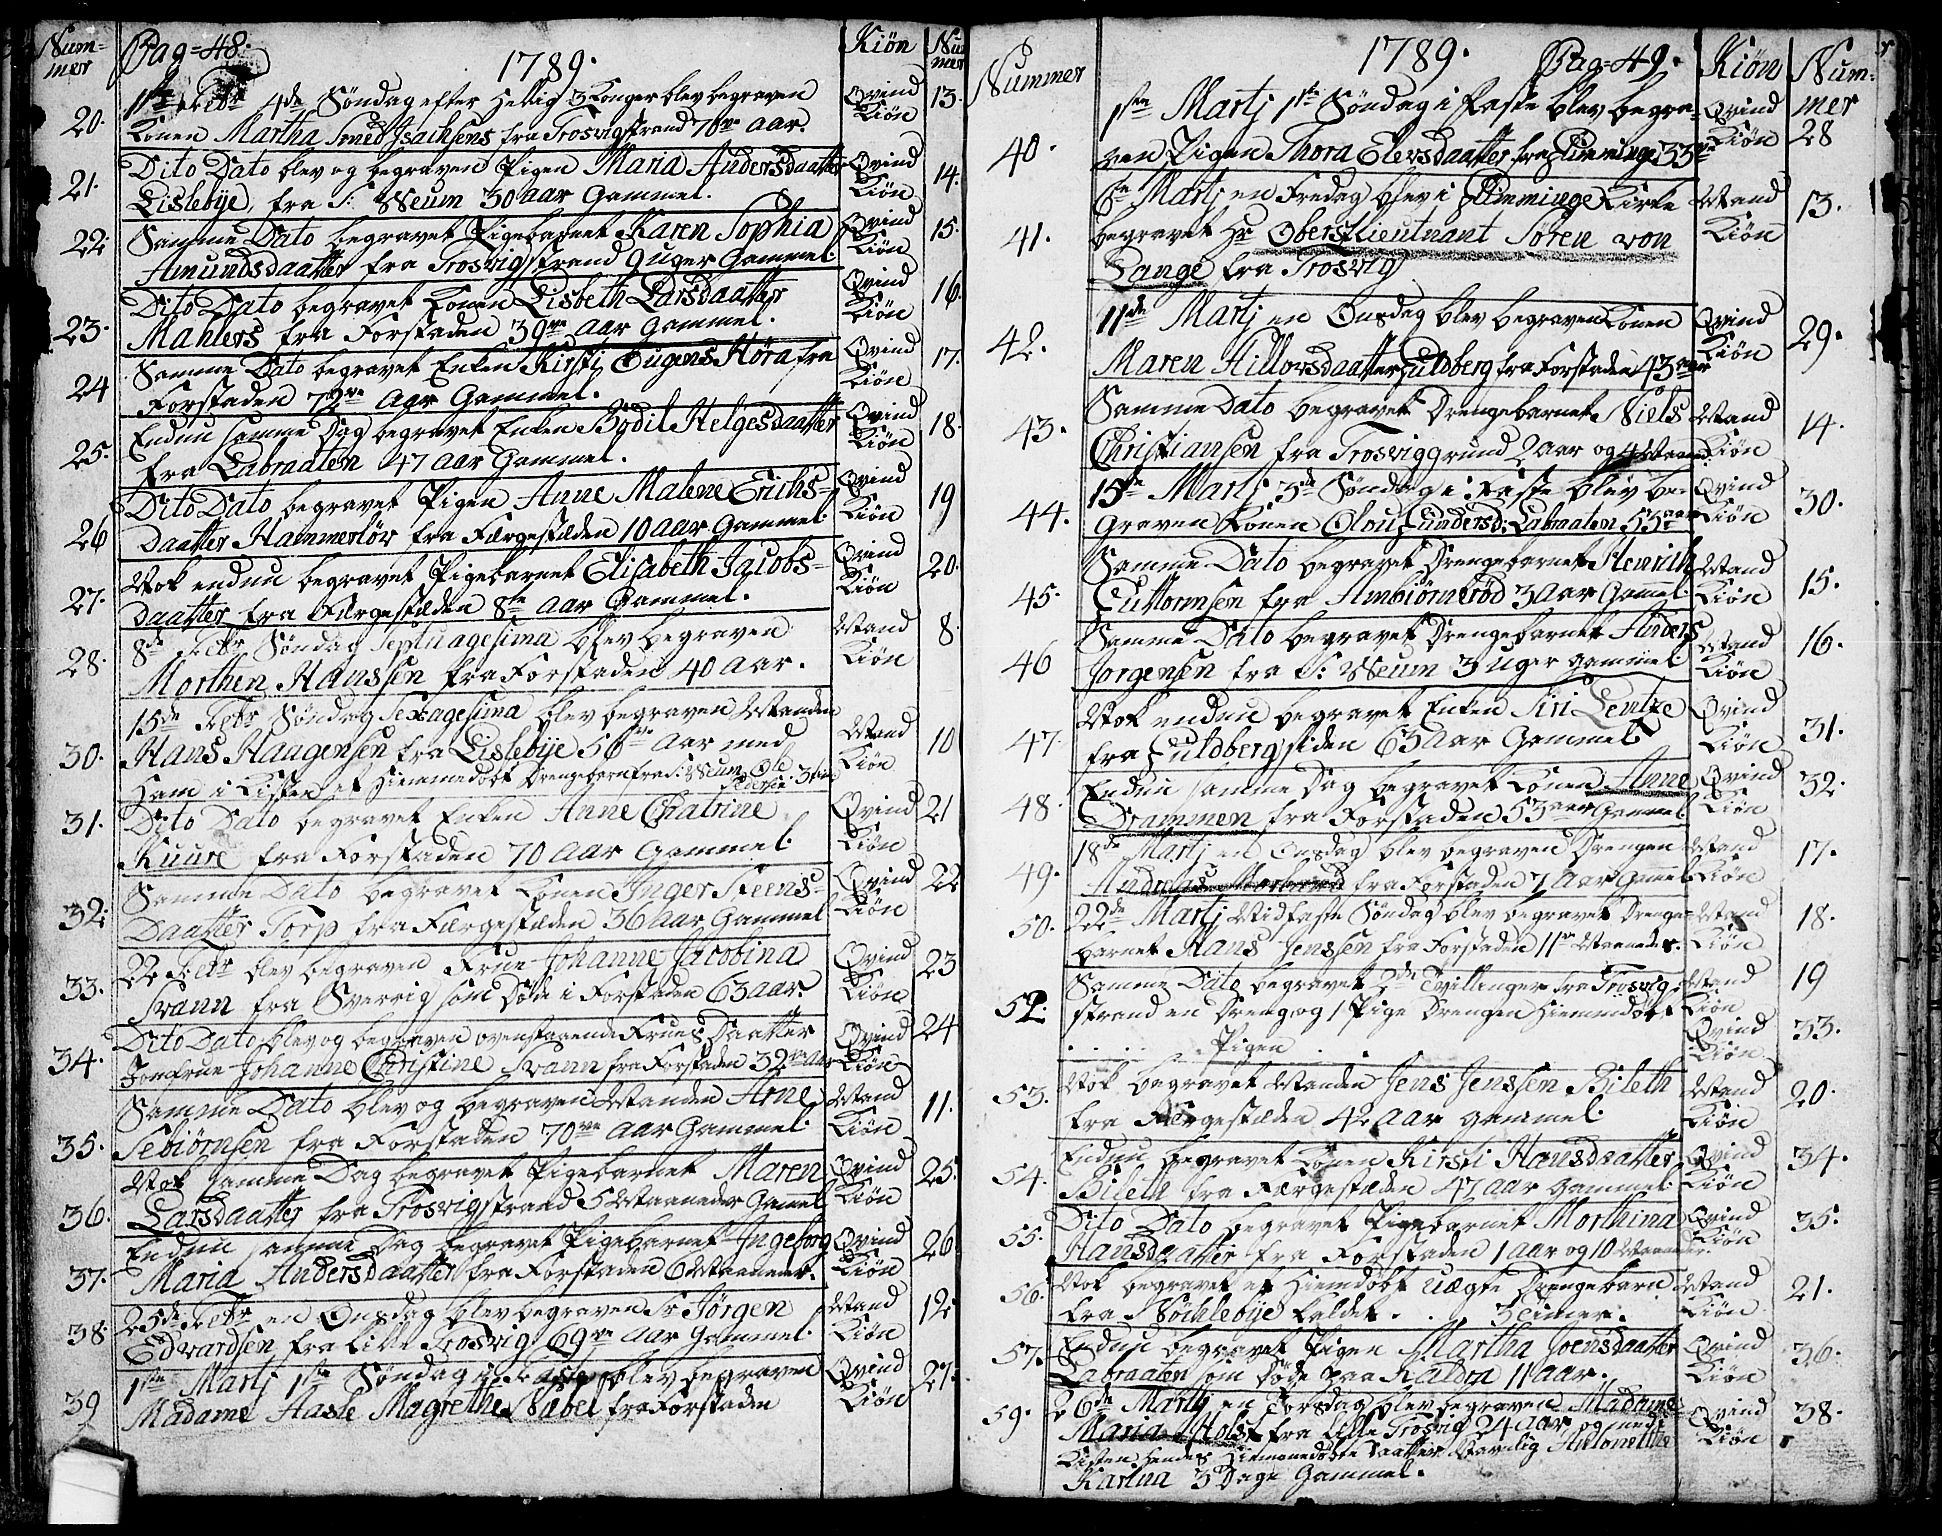 Num=
mer
Pag=48.
1789.
Kiøn
Nu
mer
20.
1ste Febr 4de Søndag efter Hellig 3 Konger blev begraven
Konen Martha Smed Isachsens fra Trosvigstrand 70ve Aar.
Qvind Kiøn
13.
21.
Dito Dato blev og begraven Pigen Maria Andersdaatter
Lislebye, fra S: Neum 30 Aar Gammel.
Qvind Kiøn
14.
22
Samme Dato begravet Pigebarnet Karen Sophia
Amundsdaatter fra Trosvigstrand 9 uger Gammel.
Qvind Kiøn
15.
23.
Dito Dato begravet Konen Lisbeth Larsdaatter
Mahlers fra Forstaden 39ve Aar Gammel.
Qvind Kiøn
16.
24
Samme Dato begravet Enken Kirsti Eugens Høra fra
Forstaden 72ve Aar Gammel.
Qvind Kiøn
17.
25.
Endnu samme Dag begravet Enken Bodil Helgesdaatter
fra Labraaten 47 Aar Gammel.
Qvind Kiøn
18.
26
Dito Dato begravet Pigen Anne Malene Erichs=
Daatter Hammerløv fra Færgestæden 10 Aar Gammel.
Qvind Kiøn
19
27.
Nok endnu begravet Pigebarnet Elisabeth Jacobs=
daatter fra Færgestæden 8te Aar Gammel.
Qvind Kiøn
20.
28.
8de Febr Søndag Septuagesima blev begraven
Morthen Hanssen fra Forstaden 40 Aar.
Mand Kiøn
8.
30.
15de Febr Søndag Sexagesima blev begraven Manden
Hans Haagensen fra Lislebye 56ve Aar med
Ham i Kisten et Hiemmedøbt Drengebarn fra S: Neum Ole
Mand Kiøn
10
31.
Dito Dato begravet Enken Anne Chatrine
Kuure fra Forstaden 70 Aar Gammel.
Qvind Kiøn
21
32.
Samme Dato begravet Konen Inger Steens=
Daatter Torp fra Færgestæden 36 Aar Gammel
Qvind Kiøn
22
33.
22 Febr blev begraven Frue Johanne Jacobina
Svann fra Sverrig som Døde i Forstaden 63 Aar.
Qvind Kiøn
23
34.
Dito Dato blev og begraven ovenstaaende Frues Daatter
Jomfrue Johanne Christine Svann fra Forstaden 32ve Aar
Qvind Kiøn
24
35.
Samme Dato blev og begraven Manden Arne
Tebiørnsen fra Forstaden 70ve Aar Gammel.
Mand Kiøn
11.
36.
Nok samme Dag begravet Pigebarnet Maren
Larsdaatter fra Trosvigstrand 5 Maaneder Gamel
Qvind Kiøn
25.
37.
Endnu samme Dag begravet Pigebarnet Ingeborg
Maria Andersdaatter fra Forstaden 6 Maaneder.
Qvind Kiøn
26
38
25de Febr en Onsdag blev begraven Sr Jørgen
Edvardsen fra Lille Trosvig 69ve Aar Gammel.
Mand Kiøn
12
39
1ste Martj 1ste Søndag i Faste blev begraven
Madame Hasle Magrethe Nabel fra Forstaden
Qvind Kiøn
27.
Nummer
1789.
Pag=49.
Kiøn
Num=
mer
40.
1ste Martj 1ste Søndag i Faste blev begra=
ven Pigen Thora Elersdaatter fra Glimminge 33ve
Qvind Kiøn
28
41.
6te Martj en Fredag blev i Glimminge Kirke
begravet Hr Oberstlieutnant Søren von
Lange fra Trosvig
Mand Kiøn
13.
42.
11de Martj en Onsdag blev begraven Konen
Maren Hillovsdaatter Guldberg fra Forstaden 43 aar
Qvind Kiøn
29.
43.
Samme Dato begravet Drengebarnet Niels
Christiansen fra Trosviggrund 2 Aar og 4 Maaned.
Mand Kiøn
14.
44.
15de Martj 3de Søndag i Faste blev be=
Graven Konen Olou Gundersd: Labraaten 55 aar
Qvind Kiøn
30.
45.
Samme Dato begravet Drengebarnet Henrich
Guttormsen fra Ambiørnerød 3 Aar Gamel.
Mand Kiøn
15.
46
Samme Dato begravet Drengebarnet Anders
Jørgensen fra S: Neum 3 Uger gammel
Mand Kiøn
16.
47.
Nok endnu begravet Enken Siri Lentze
fra Guldbergsiden 63 Aar Gammel
Qvind Kiøn
31.
48.
Endnu samme Dag begravet Konen Anne
Drammen fra Forstaden 53 aar Gammel.
Qvind Kiøn
32.
49.
18de Martj en Onsdag blev begraven Drengen
Andreas fra Forstaden 7 Aar Gamel
Mand Kiøn
17.
50.
22de Martj Midfaste Søndag blev begravet Drenge=
barnet Hans Jenssen fra Forstaden 11ve Maaneder.
Mand Kiøn
18.
52.
Samme Dato begravet 2de Tvillinger fra Trosvig
strand en Dreng og 1 Pige Drengen Hiemmedøbt
. . . . Pigen . .
Mand Kiøn
19
Qvind Kiøn
33.
53.
Nok begravet Manden Jens Jenssen Bileth
fra Færgestæden 42 Aar gammel.
Mand Kiøn
20.
54.
Endnu begravet Konen Kirsti Hansdaatter
Bileth fra Færgestæden 47 Aar Gammel.
Qvind Kiøn
34.
55.
Dito Dato begravet Pigebarnet Morthina
Hansdaatter fra Forstaden 1 Aar og 10 Maaneder.
Qvind Kiøn
35.
56.
Nok begravet et Hiemdøbt Uægte Drengebarn
fra Nøchlebye kaldet . . 3 timer.
Mand Kiøn
21.
57.
Endnu begravet Pigen Martha Joensdaatter
Labraaten som Døde paa Kaldra 11 Aar.
Qvind Kiøn
36.
59.
26de Martj en Torsdag blev begraven Madame
Maria Holst fra lille Trosvig 24 Aar og med i
Kisten Hendes Hiemmedøbte Daatter Navnlig Antonette
Karina 3 Dage Gammel.
Qvind Kiøn
38.